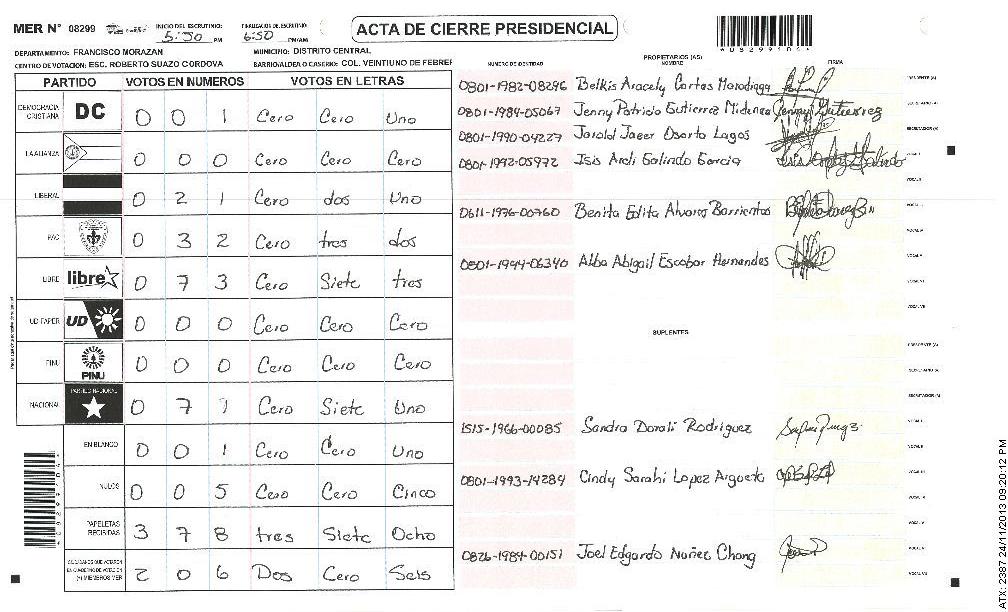 MER N° 08299 INICIO DEL ESCRUTINIO: 5:50 PM FINALIZACION DEL ESCRUTINIO: 6:50 PM/AM ACTA DE CIERRE PRESIDENCIAL
DEPARTAMENTO: FRANCISCO MORAZAN MUNICIPIO: DISTRITO CENTRAL
CENTRO DE VOTACION: ESC. ROBERTO SUAZO CORDOVA BARRIO/ALDEA O CASERIO: COL. VEINTIUNO DE FEBRER
PARTIDO VOTOS EN NUMEROS VOTOS EN LETRAS
DEMOCRACIA CRISTIANA DC 0 0 1 Cero Cero Uno
LA ALIANZA 0 0 0 Cero Cero Cero
LIBERAL 0 2 1 Cero dos Uno
PAC 0 3 2 Cero tres dos
LIBRE libre 0 7 3 Cero Siete tres
UD FAPER UD 0 0 0 Cero Cero Cero
PINU PINU 0 0 0 Cero Cero Cero
NACIONAL PARTIDO NACIONAL 0 7 1 Cero Siete Uno
EN BLANCO 0 0 1 Cero Cero Uno
NULOS 0 0 5 Cero Cero Cinco
PAPELETAS RECIBIDAS 3 7 8 tres Siete Ocho
CIUDADANOS QUE VOTARON EN CUADERNO DE VOTACION (+) MIEMBROS MER 2 0 6 Dos Cero Seis
PROPIETARIOS (AS)
NUMERO DE IDENTIDAD NOMBRE FIRMA
0801-1982-08296 Belkis Aracely Cortas
0801-1984-05067 Jenny Patricia Gutierrez
0801-1990-04227 Jarold Jaer Osorto Lagos
0801-1992-05972 Isis Ardi Galindo Garcia
0611-1976-00760 Benita Edita Alvares Barrientos
0801-1944-06340 Alba Abigail Escobar Hernandes
SUPLENTES
1515-1966-00085 Sandra Dorali Rodriguez
0801-1993-14284 Cindy Sarahi Lopez Argueta
0826-1984-00151 Joel Edgardo Nuñez Chang
ATX: 2387 24/11/2013 09:20:12 PM